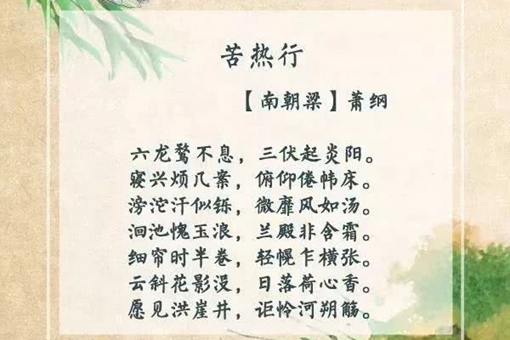 苦热行
【南朝梁】萧纲
六龙骛不息，三伏起炎阳。
寝兴烦几案，俯仰倦帏床。
滂沱汗似铄，微靡风如汤。
洄池愧玉浪，兰殿非含霜。
细帘时半卷，轻幌乍横张。
云斜花影没，日落荷心香。
愿见洪崖井，讵怜河朔觞。